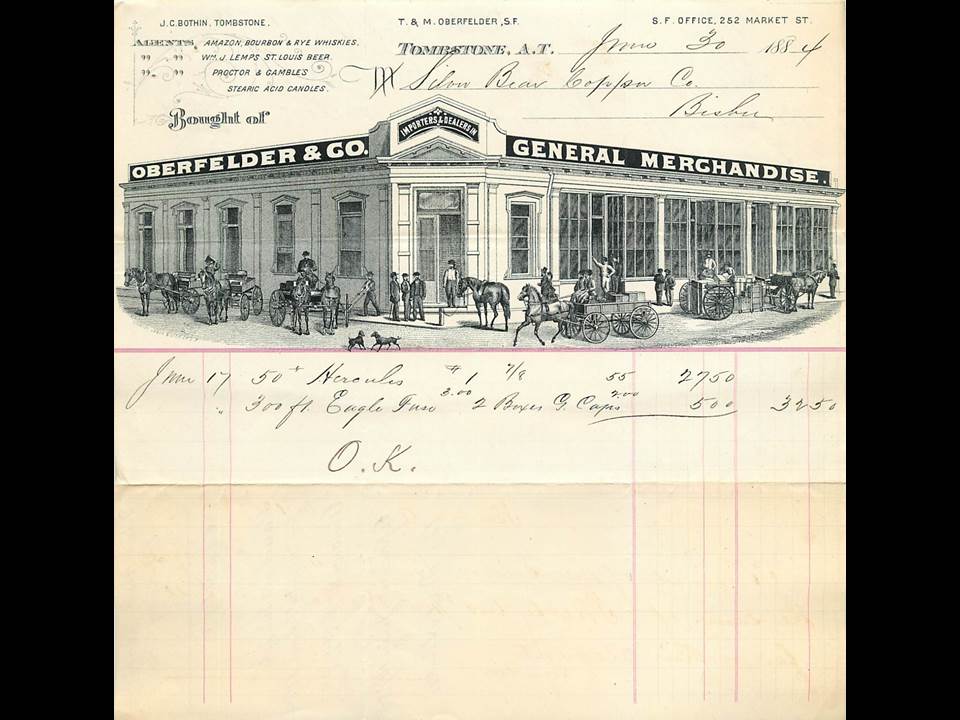 J.C. BOTHIN, TOMBSTONE. T. & M. OBERFELDER, S.F. S.F. OFFICE, 252 MARKET ST.
AGENTS, AMAZON, BOURBON & RYE WHISKIES.
" " WM. J. LEMPS ST. LOUIS BEER.
" " PROCTOR & GAMBLE'S
STEARIC ACID CANDLES.
TOMBSTONE, A.T. June 30 1884
M Silver Bear Copper Co.
Bisbee
Bought of
IMPORTERS & DEALERS IN
OBERFELDER & CO. GENERAL MERCHANDISE.
June 17 50# Hercules #1 7/8 55 2750
" 300 ft. Eagle Fuse 3.00 2 Boxes G. Caps 2.00 500 3250
O.K.